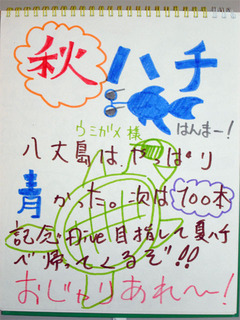 秋 ハチ
はんまー！
ウミガメ様
八丈島は、やっぱり
青かった。次は100本
記念Dive目指して夏ハチ
へ帰ってくるぞ!!
おじゃりあれ〜！